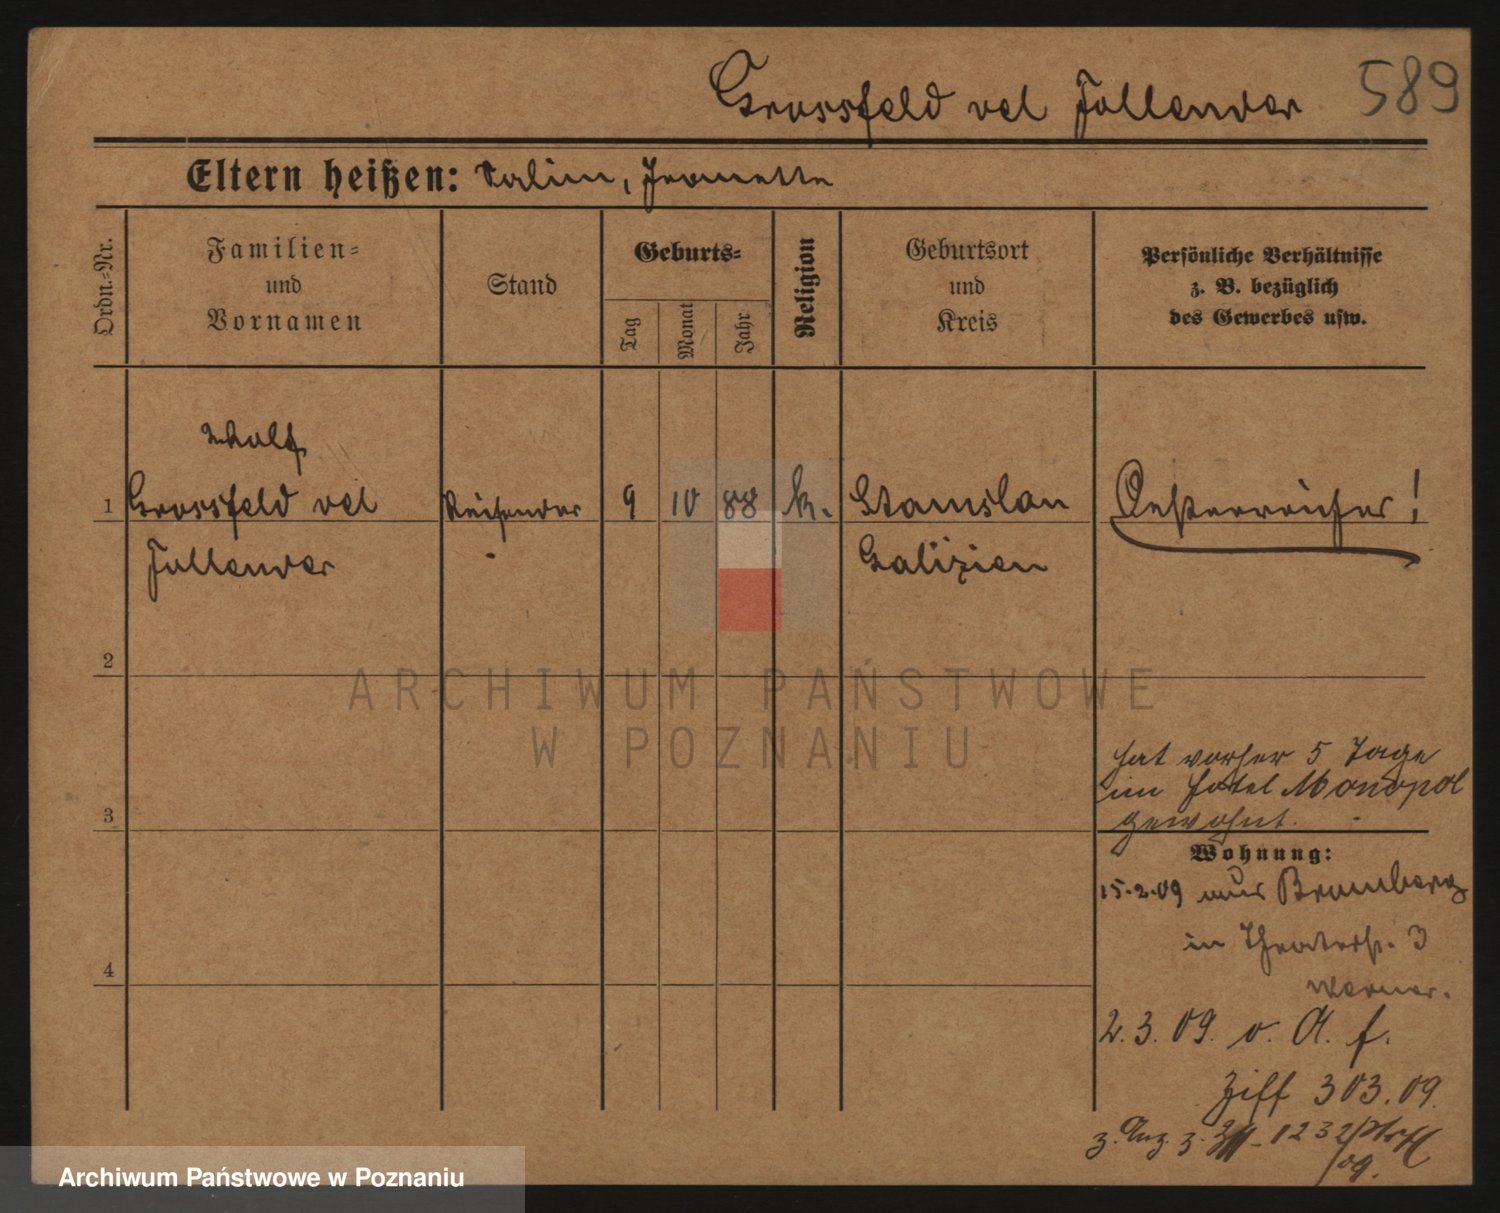 Grossfeld vel Follender 589
Eltern heißen: Salim, Jeanette
Ordn.-Nr.
Familien-
und
Vornamen
Stand
Geburts-
Tag
Monat
Jahr
Religion
Geburtsort
und
Kreis
Persönliche Verhältnisse
z. B. bezüglich
des Gewerbes usw.
Wolf
1 Grossfeld vel Reisender 9 10 88 k. Stanislau Oesterreicher!
Follender Galizien
2
ARCHIWUM PAŃSTWOWE
W POZNANIU
hat vorher 5 Tage
im Hotel Monopol
gewohnt.
3
Wohnung:
15.2.09 aus Bromberg
in Theaterstr. 3
4
Werner.
2.3.09. v. A. f.
Ziff 303.09.
z. Anz. z. 1232
09.
Archiwum Państwowe w Poznaniu